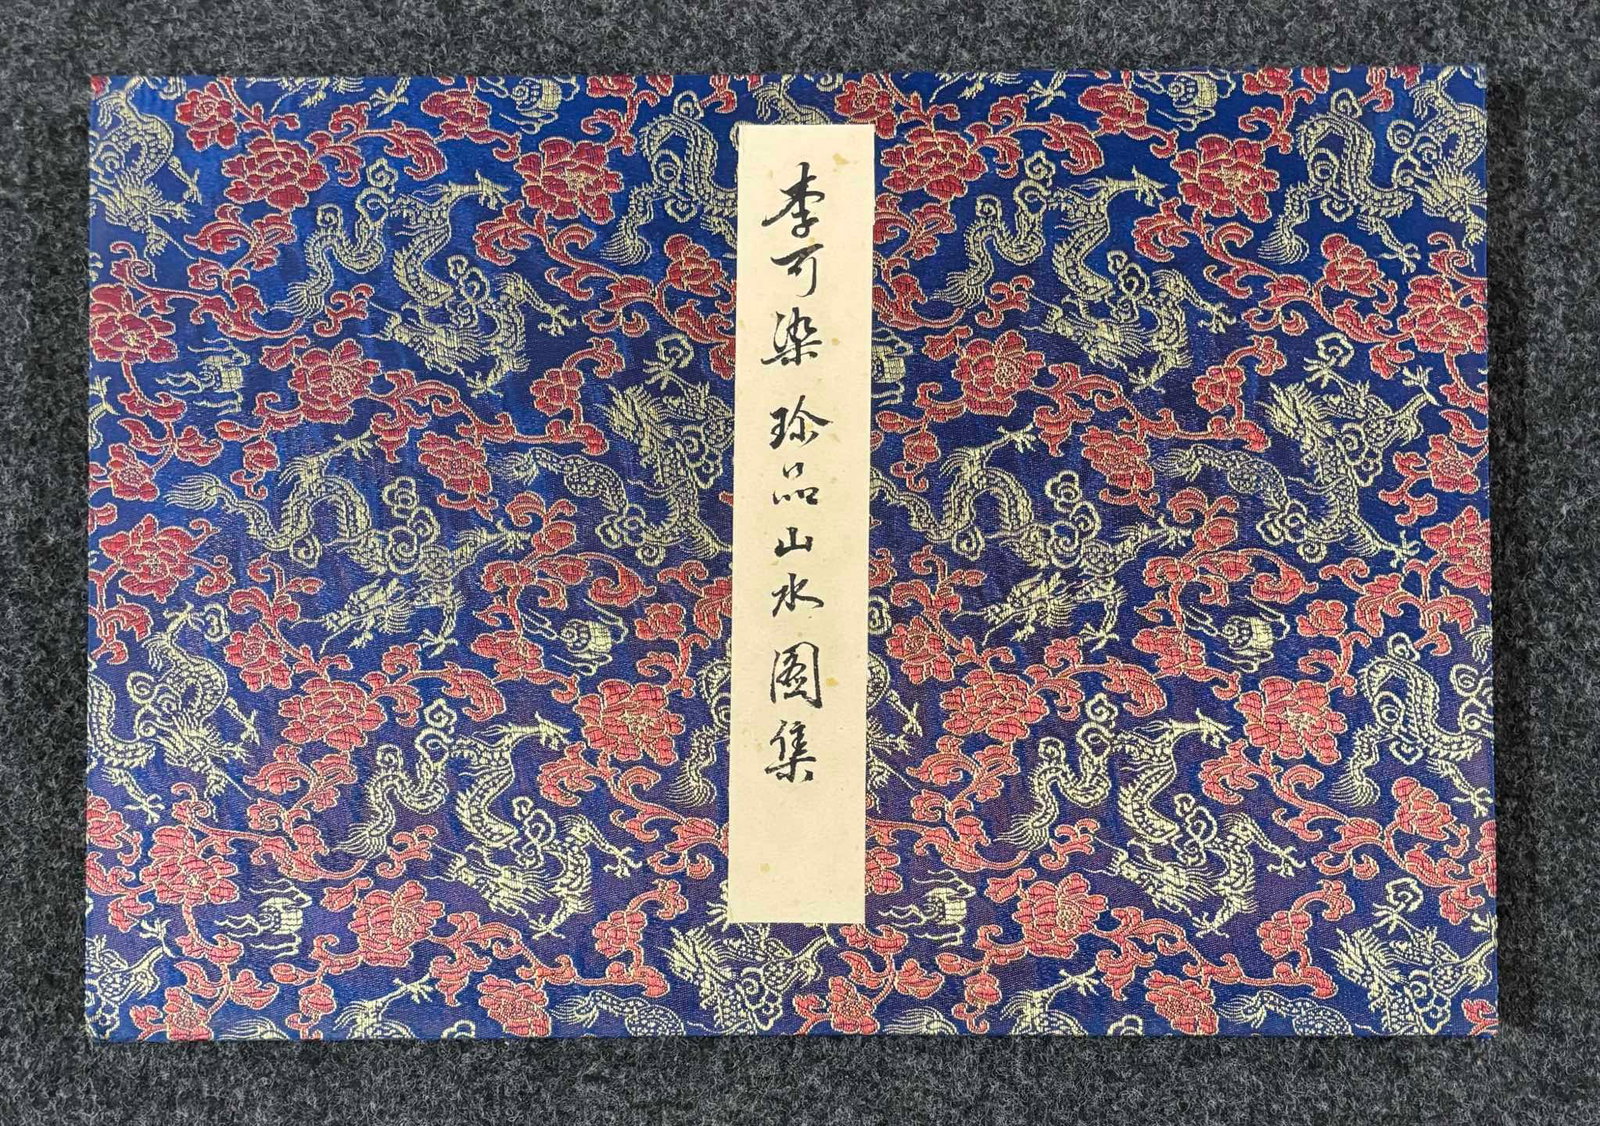 李可染珍品山水图集